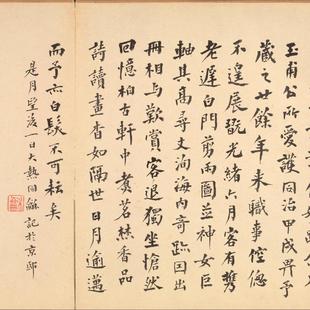 玉甫公所愛護同治甲戌畀予
藏之廿餘年来職事倥偬
不遑展翫光緒六月客有携
老遲白門剪雨圖並神女巨
軸其高尋丈洵海内奇跡囙出
冊相与歎賞客退獨坐愴然
回憶柏古軒中煑茗焚香品
詩讀畫杳如隔世日月逾邁
而予亦白髮不可耘矣
是月望後一日大熱伯龢記於京邸